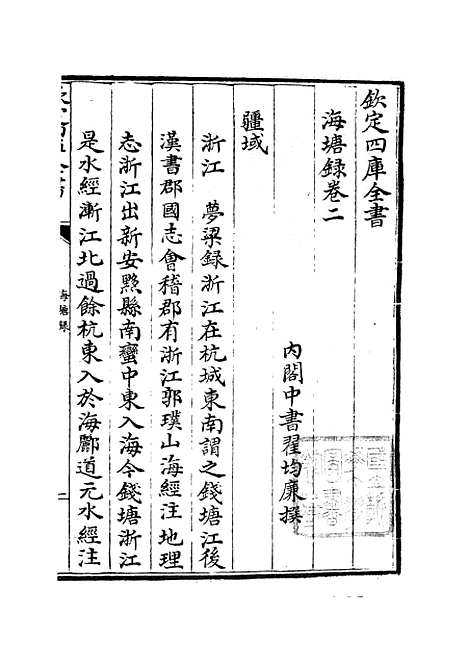 欽定四庫全書
海塘録卷二
內閣中書翟均廉撰
疆域
浙江　夢梁録浙江在杭城東南謂之錢塘江後
漢書郡國志會稽郡有浙江郭璞山海經注地理
志浙江出新安黟縣南蠻中東入海今錢塘浙江
是水經漸江北過餘杭東入於海酈道元水經注
海塘録